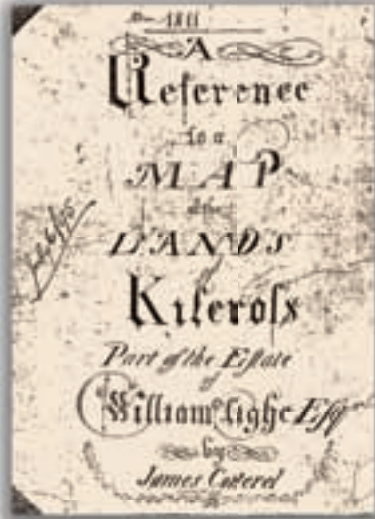 1811
A
Reference
to a
MAP
of the
LANDS
of
Kilcroſs
Part of the Eſtate
of
William Lighe Eſqr
by
James Cotterel